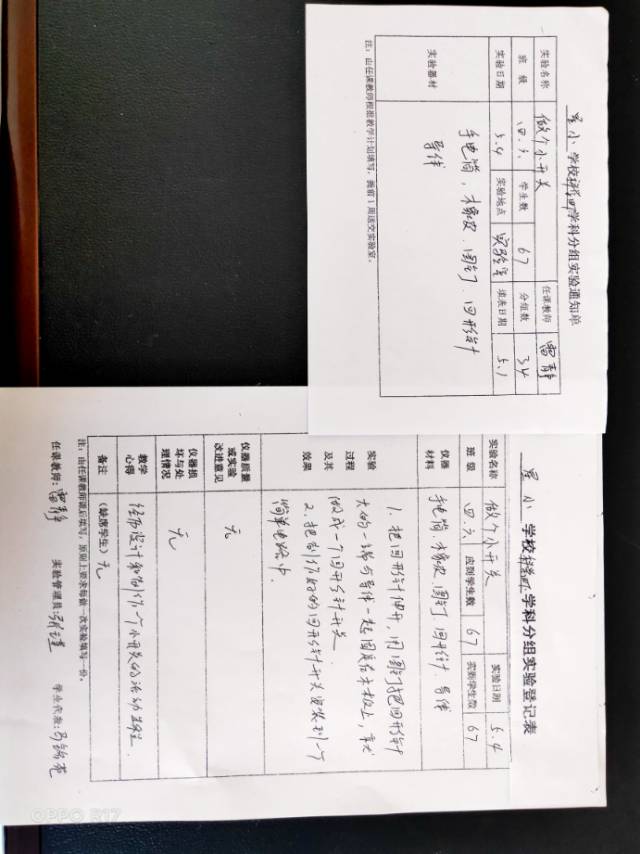 星小 学校科学四学科分组实验通知单
实验名称 做个小开关 任课教师 雷静
班级 四.3. 学生数 67 分组数 34
实验日期 5.4 实验地点 实验室 填表日期 5.1
实验器材 手电筒,木橡皮.图钉.回形针
导线
注:由任课教师根据教学计划填写,提前1周送交实验室。
星小 学校科学四学科分组实验登记表
实验名称 做个小开关 实验日期 5.4
班级 四.3 应到学生数 67 实到学生数 67
仪器材料 手电筒.木橡皮.图钉.回形针.导线
实验过程及其效果
1.把回形针伸开,用图钉把回形针
大的一端与导线一起固定在木板上,
做成一个回形针开关.
2.把制作好的回形针开关安装到一个
简单电路中.
仪器质量或实验改进意见 无
仪器损坏与处理情况 无
教学心得 经历设计和制作一个小开关的活动过程.
备注 (缺席学生)无
注:由任课教师课后填写,原则上要求每做一次实验填写一份。
任课教师:雷静 实验管理员: 学生代表:
OPPO R17